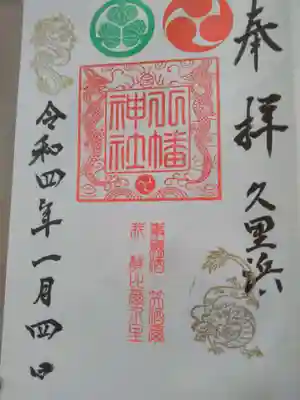 奉拝
久里浜
八幡神社
令和四年一月四日